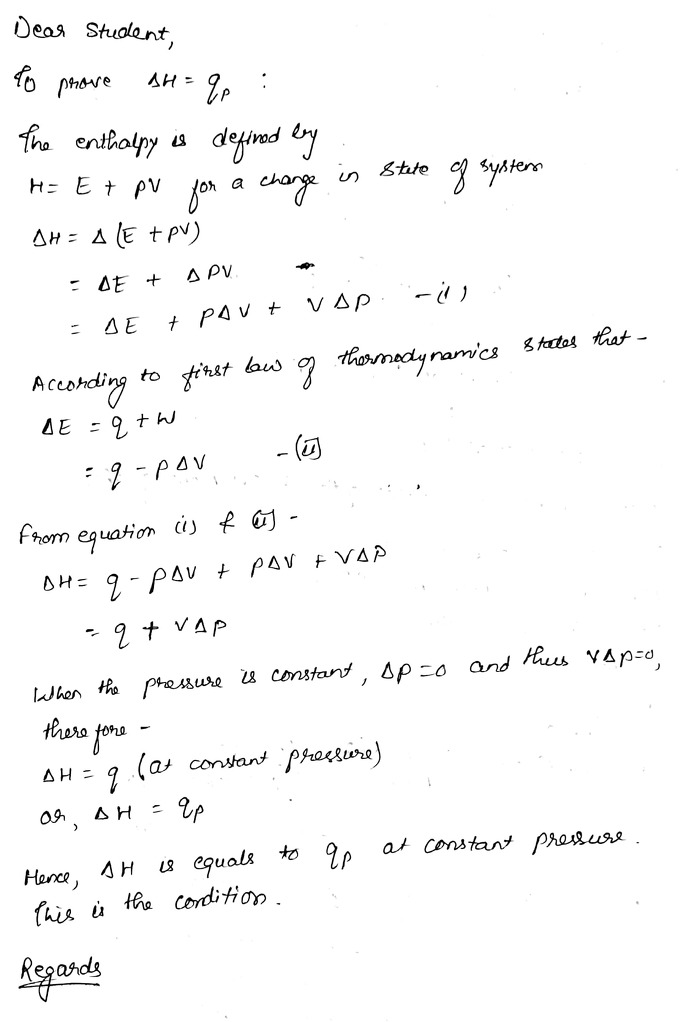 Dear Student,
To prove ΔH = qp :
The enthalpy is defined by
H = E + PV for a change in state of system
ΔH = Δ (E + PV)
= ΔE + Δ PV
= ΔE + PΔV + VΔP -(i)
According to first law of thermodynamics states that -
ΔE = q + W
= q - PΔV -(ii)
From equation (i) & (ii) -
ΔH = q - PΔV + PΔV + VΔP
= q + VΔP
When the pressure is constant, ΔP = 0 and thus VΔP=0,
therefore -
ΔH = q (at constant pressure)
or, ΔH = qp
Hence, ΔH is equals to qp at constant pressure.
This is the condition.
Regards